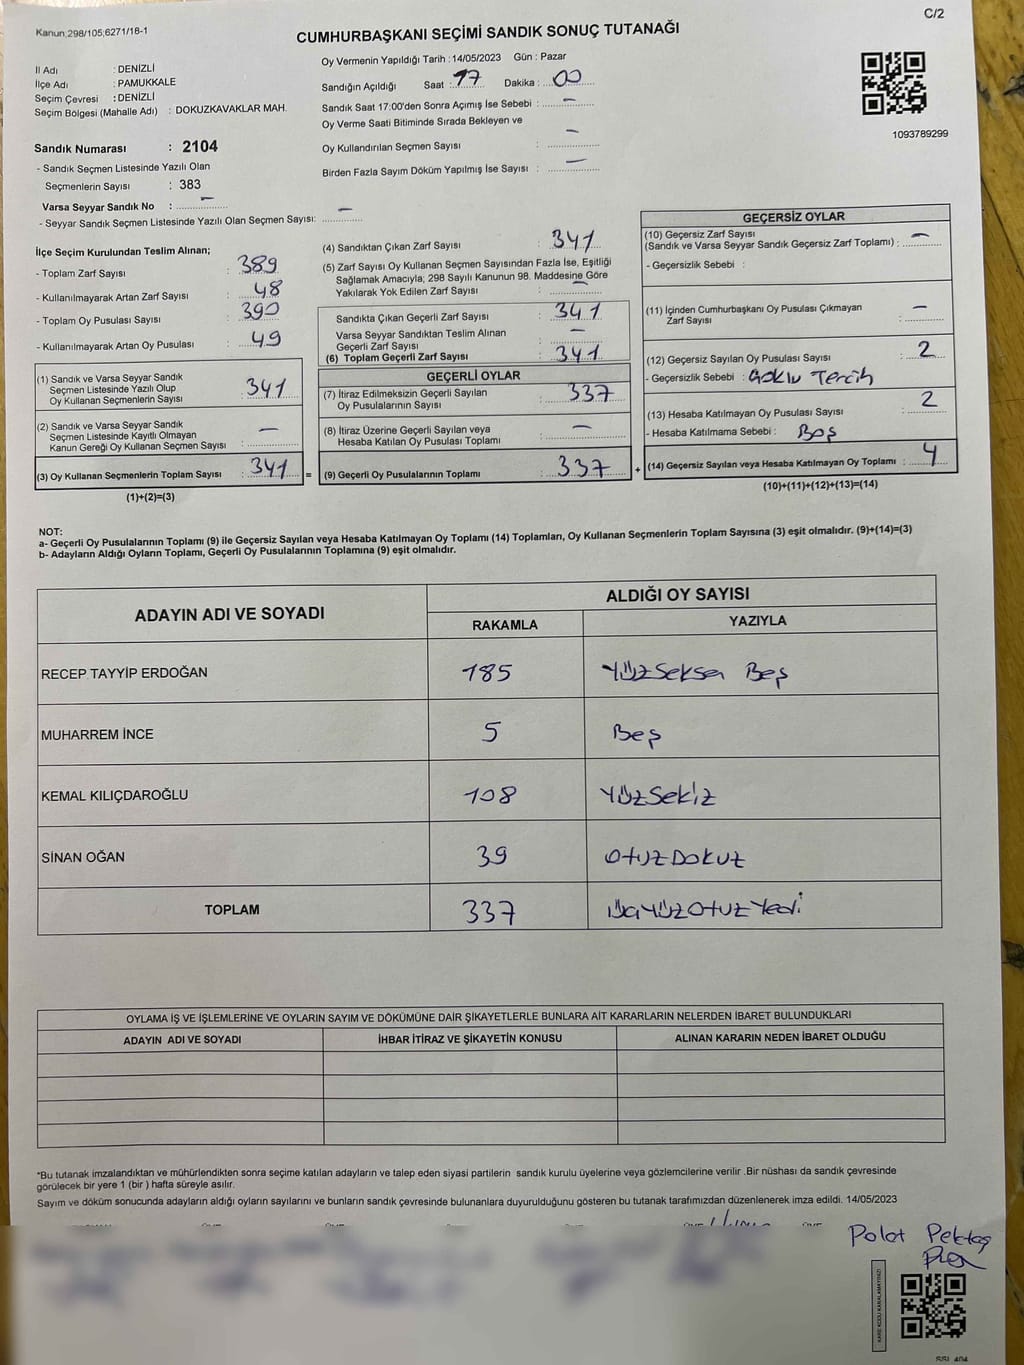 C/2
Kanun:298/105;6271/18-1
CUMHURBAŞKANI SEÇİMİ SANDIK SONUÇ TUTANAĞI
İl Adı : DENİZLİ
İlçe Adı : PAMUKKALE
Seçim Çevresi : DENİZLİ
Seçim Bölgesi (Mahalle Adı) : DOKUZKAVAKLAR MAH.
Sandık Numarası : 2104
- Sandık Seçmen Listesinde Yazılı Olan
Seçmenlerin Sayısı : 383
Varsa Seyyar Sandık No : —
- Seyyar Sandık Seçmen Listesinde Yazılı Olan Seçmen Sayısı: —
Oy Vermenin Yapıldığı Tarih : 14/05/2023 Gün : Pazar
Sandığın Açıldığı Saat : 17 Dakika : 00
Sandık Saat 17:00'den Sonra Açımış İse Sebebi : —
Oy Verme Saati Bitiminde Sırada Bekleyen ve
Oy Kullandırılan Seçmen Sayısı : —
Birden Fazla Sayım Döküm Yapılmış İse Sayısı : —
1093789299
İlçe Seçim Kurulundan Teslim Alınan;
- Toplam Zarf Sayısı : 389
- Kullanılmayarak Artan Zarf Sayısı : 48
- Toplam Oy Pusulası Sayısı : 390
- Kullanılmayarak Artan Oy Pusulası : 49
(1) Sandık ve Varsa Seyyar Sandık
Seçmen Listesinde Yazılı Olup
Oy Kullanan Seçmenlerin Sayısı : 341
(2) Sandık ve Varsa Seyyar Sandık
Seçmen Listesinde Kayıtlı Olmayan
Kanun Gereği Oy Kullanan Seçmen Sayısı : —
(3) Oy Kullanan Seçmenlerin Toplam Sayısı : 341 =
(1)+(2)=(3)
(4) Sandıktan Çıkan Zarf Sayısı : 341
(5) Zarf Sayısı Oy Kullanan Seçmen Sayısından Fazla İse, Eşitliği
Sağlamak Amacıyla; 298 Sayılı Kanunun 98. Maddesine Göre
Yakılarak Yok Edilen Zarf Sayısı : —
Sandıkta Çıkan Geçerli Zarf Sayısı : 341
Varsa Seyyar Sandıktan Teslim Alınan
Geçerli Zarf Sayısı : —
(6) Toplam Geçerli Zarf Sayısı : 341
GEÇERLİ OYLAR
(7) İtiraz Edilmeksizin Geçerli Sayılan
Oy Pusulalarının Sayısı : 337
(8) İtiraz Üzerine Geçerli Sayılan veya
Hesaba Katılan Oy Pusulası Toplamı : —
(9) Geçerli Oy Pusulalarının Toplamı : 337 +
GEÇERSİZ OYLAR
(10) Geçersiz Zarf Sayısı
(Sandık ve Varsa Seyyar Sandık Geçersiz Zarf Toplamı) : —
- Geçersizlik Sebebi :
(11) İçinden Cumhurbaşkanı Oy Pusulası Çıkmayan
Zarf Sayısı : —
(12) Geçersiz Sayılan Oy Pusulası Sayısı : 2
- Geçersizlik Sebebi : Çoklu Tercih
(13) Hesaba Katılmayan Oy Pusulası Sayısı : 2
- Hesaba Katılmama Sebebi : Boş
(14) Geçersiz Sayılan veya Hesaba Katılmayan Oy Toplamı : 4
(10)+(11)+(12)+(13)=(14)
NOT:
a- Geçerli Oy Pusulalarının Toplamı (9) ile Geçersiz Sayılan veya Hesaba Katılmayan Oy Toplamı (14) Toplamları, Oy Kullanan Seçmenlerin Toplam Sayısına (3) eşit olmalıdır. (9)+(14)=(3)
b- Adayların Aldığı Oyların Toplamı, Geçerli Oy Pusulalarının Toplamına (9) eşit olmalıdır.
ADAYIN ADI VE SOYADI
ALDIĞI OY SAYISI
RAKAMLA YAZIYLA
RECEP TAYYİP ERDOĞAN 185 Yüzseksen Beş
MUHARREM İNCE 5 Beş
KEMAL KILIÇDAROĞLU 108 Yüzsekiz
SİNAN OĞAN 39 Otuz Dokuz
TOPLAM 337 ÜçyüzOtuzYedi
OYLAMA İŞ VE İŞLEMLERİNE VE OYLARIN SAYIM VE DÖKÜMÜNE DAİR ŞİKAYETLERLE BUNLARA AİT KARARLARIN NELERDEN İBARET BULUNDUKLARI
ADAYIN ADI VE SOYADI İHBAR İTİRAZ VE ŞİKAYETİN KONUSU ALINAN KARARIN NEDEN İBARET OLDUĞU
*Bu tutanak imzalandıktan ve mühürlendikten sonra seçime katılan adayların ve talep eden siyasi partilerin sandık kurulu üyelerine veya gözlemcilerine verilir .Bir nüshası da sandık çevresinde
görülecek bir yere 1 (bir ) hafta süreyle asılır.
Sayım ve döküm sonucunda adayların aldığı oyların sayılarını ve bunların sandık çevresinde bulunanlara duyurulduğunu gösteren bu tutanak tarafımızdan düzenlenerek imza edildi. 14/05/2023
Polat Pektaş
KARE KODU KARALAMAYINIZ!